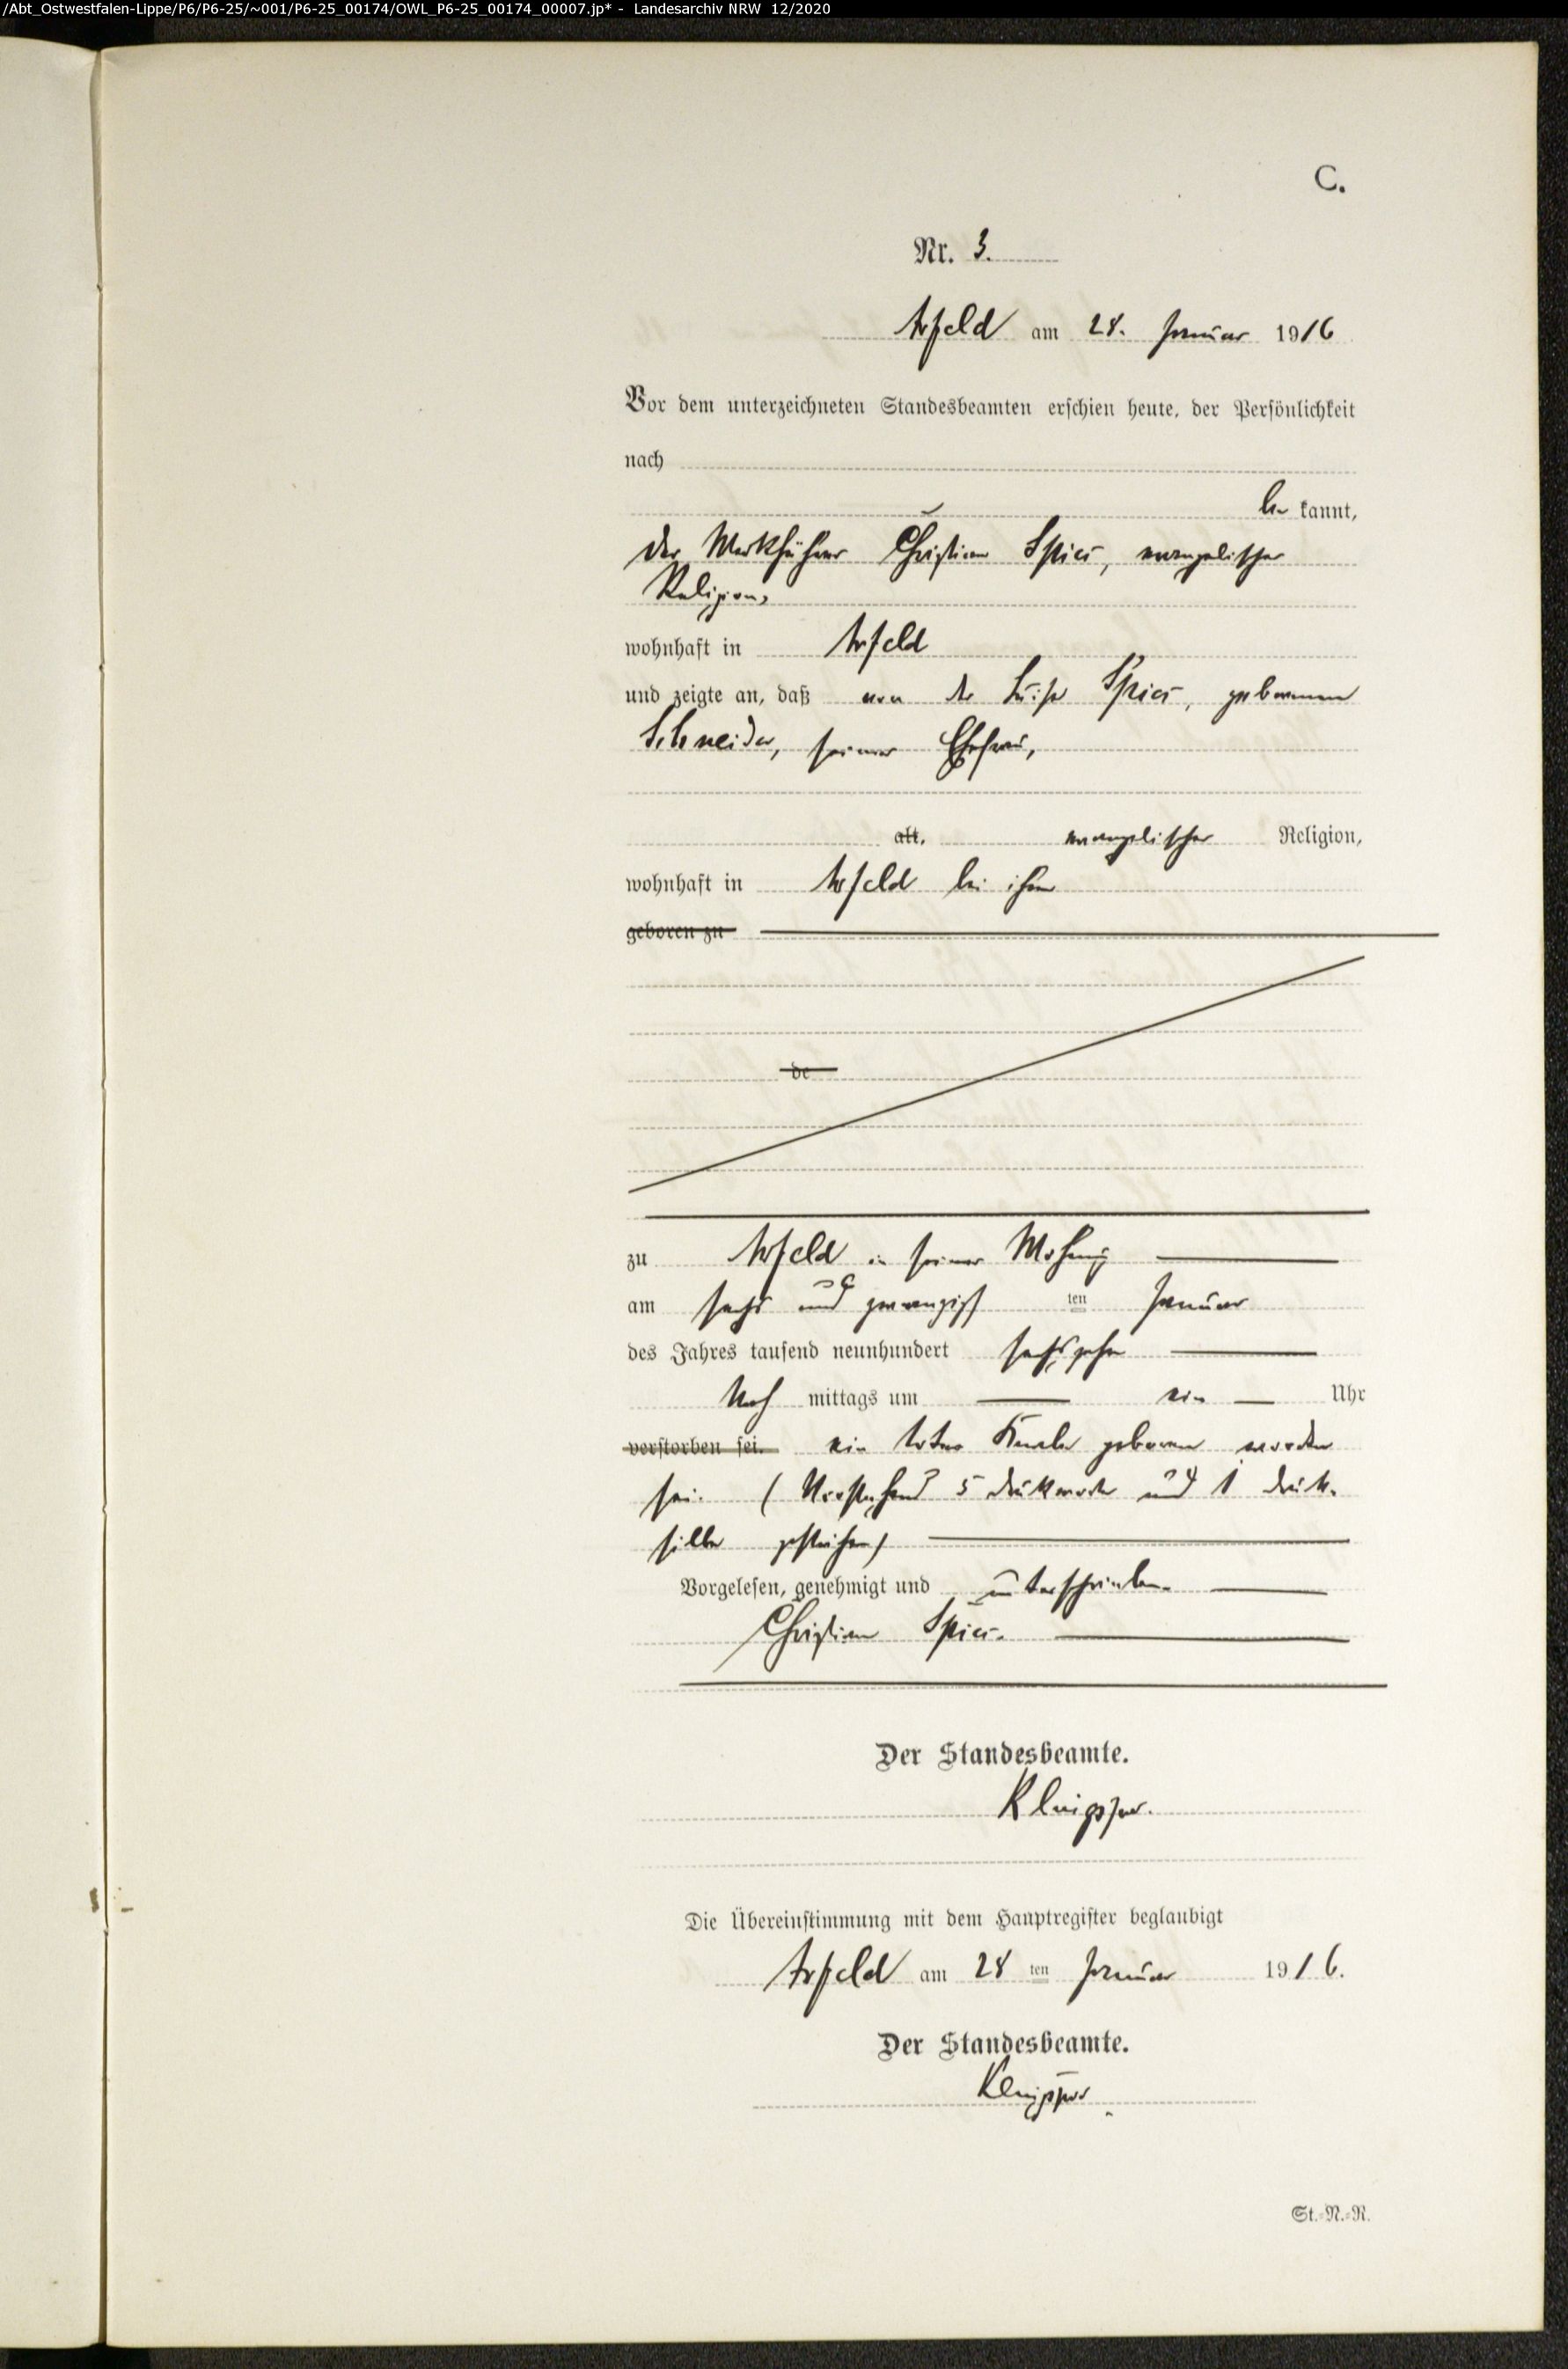 /Abt_Ostwestfalen-Lippe/P6/P6-25/~001/P6-25_00174/OWL_P6-25_00174_00007.jp* - Landesarchiv NRW 12/2020
C.
Nr. 3.
Arfeld am 28. Januar 1916
Vor dem unterzeichneten Standesbeamten erschien heute, der Persönlichkeit
nach
be kannt,
der Werkführer Christian Spies, evangelischer
Religion,
wohnhaft in Arfeld
und zeigte an, daß von der Luise Spies, geborenen
Schneider, seiner Ehefrau,
alt, evangelischer Religion,
wohnhaft in Arfeld bei ihm
geboren zu
de
zu Arfeld in seiner Wohnung
am sechs und zwanzigsten Januar
des Jahres tausend neunhundert sechszehn
Nach mittags um ein Uhr
verstorben sei. ein toter Knabe geboren worden
sei. (Vorstehend 5 Druckworte und 1 Druck-
silbe gestrichen)
Vorgelesen, genehmigt und unterschrieben.
Christian Spies.
Der Standesbeamte.
Die Übereinstimmung mit dem Hauptregister beglaubigt
Arfeld am 28 ten Januar 1916.
Der Standesbeamte.
St.-N.-R.